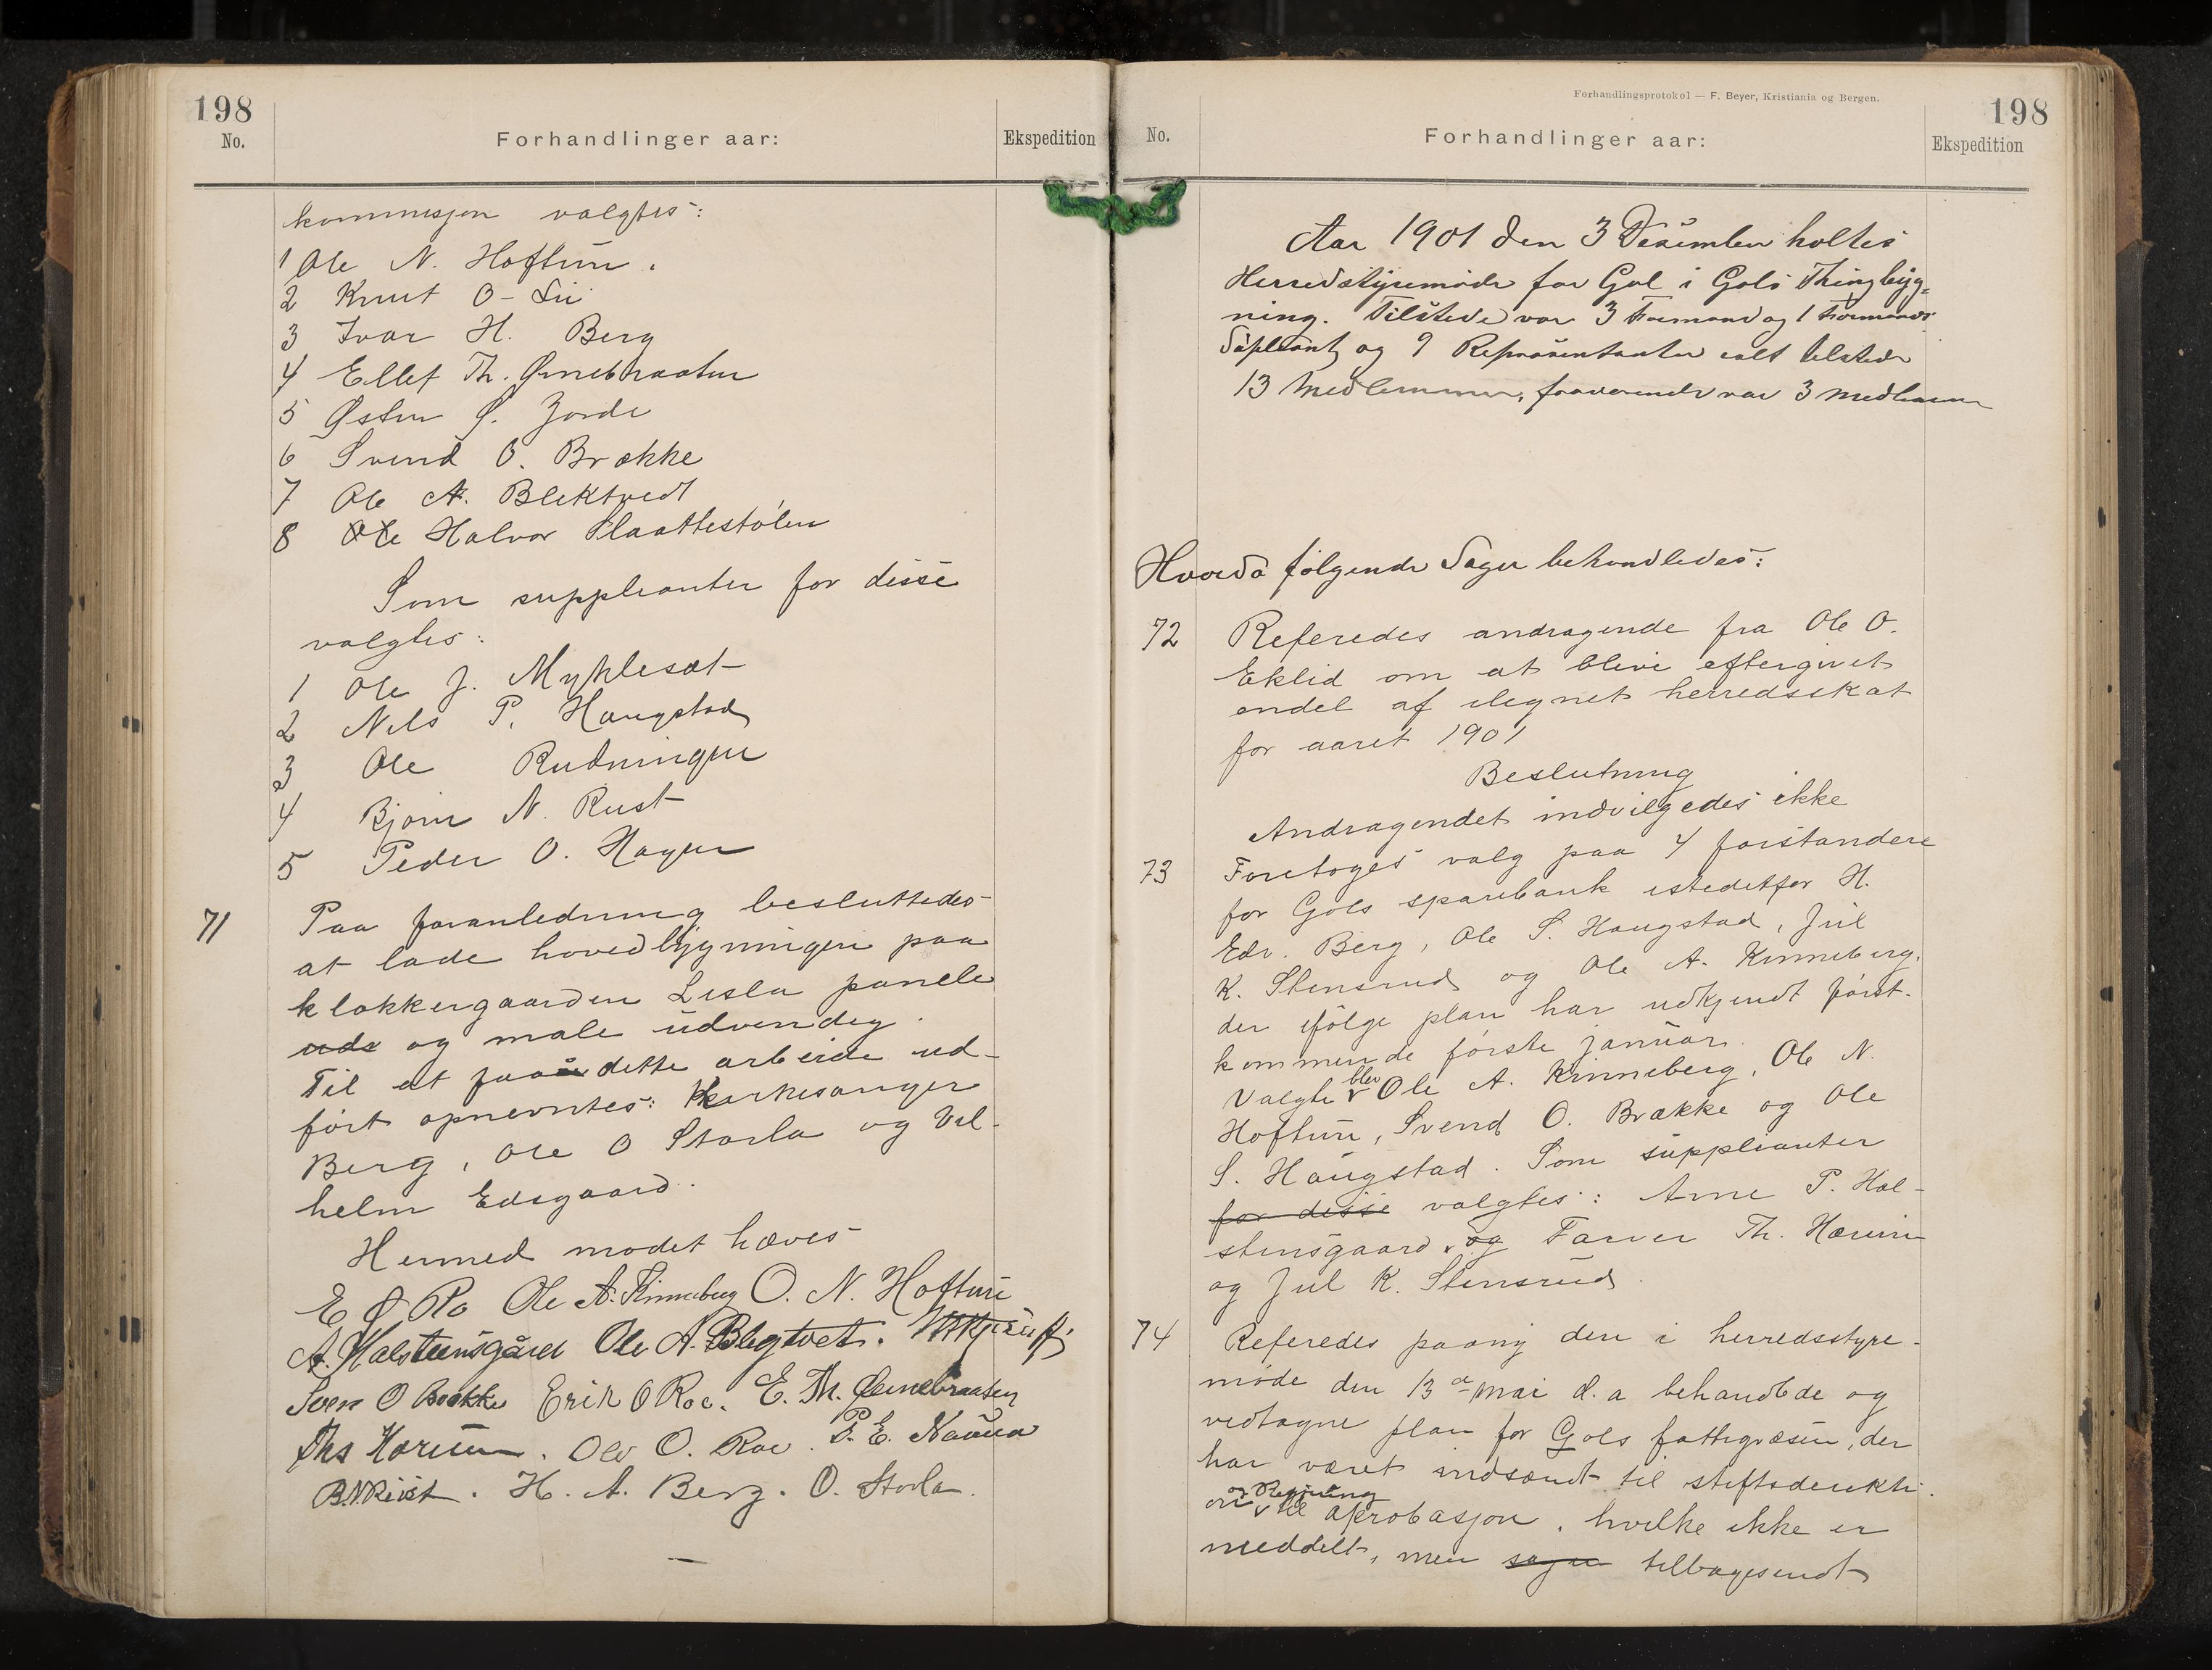 198
No.
Forhandlinger aar:
Ekspedition
kommisjon valgtes:
1 Ole N. Hoftun.
2 Knut O. Lii
3 Ivar H. Berg
4 Ellef Th. Ørnebraaten
5 Østen Ø. Jorde
6 Svend O. Brække
7 Ole A. Blektvedt
8 Ole Halvor Slaattestølen
Som supplianter for disse
valgtes:
1 Ole J. Myklesæt
2 Nils P. Haugstad
3 Ole Rudningen
4 Bjørn N. Rust
5 Peder O. Hagen
71 Paa foranledning besluttedes
at lade hovedbygningen paa
klokkergaarden Lesla panele
uds og male udvendig.
Til at faa dette arbeide ud-
ført opnevntes: Kirkesanger
Berg, Ole O Storla og Vil-
helm Edsgaard.
Hermed mødet hæves
E Ø Ro Ole A. Kinneberg O. N. Hoftun
A. Halsteensgård Ole A. Blegtvet.
Sven O Brække Erik O Roe. E. Th. Ørnebraaten
Ths Hærum. Ole O. Roe. P. E.
B.N Rust. H. A. Berg. O. Storla.
Forhandlingsprotokol — F. Beyer, Kristiania og Bergen.
198
No.
Forhandlinger aar:
Ekspedition
Aar 1901 den 3 Desember holtes
Herredstyremøde for Gol i Gols Thingbyg-
ning. Tilstede var 3 Formænd og 1 Formands
Supleant og 9 Repræsentanter ialt tilstede
13 Medlemmer, fraværende var 3 medlemmer
Hvorda følgende Sager behandledes:
72 Referedes andragende fra Ole O.
Eklid om at blive eftergivet
endel af ilegnet herredsskat
for aaret 1901
Beslutning
Andragendet indvilgedes ikke
73 Foretoges valg paa 4 forstandere
for Gols sparebank istedetfor H.
Edr. Berg, Ole S. Haugstad, Jul
K. Stensrud og Ole A. Kinneberg.
der ifølge plan har udkjendt først-
kommende første januar.
Valgte blev Ole A. Kinneberg, Ole N.
Hoftun, Svend O. Brække og Ole
S. Haugstad. Som supplianter
for disse valgtes: Arne P. Hal-
stensgaard, og Farver Th. Hærum
og Jul K. Stensrud.
74 Referedes paany den i herredsstyre-
møde den 13de mai d.a behandlede og
vedtagne plan for Gols fattigvæsen, der
har været indsændt til stiftsdirekti-
on og Regjering til aprobasjon, hvilke ikke er
meddelt, men sagen tilbagesendt